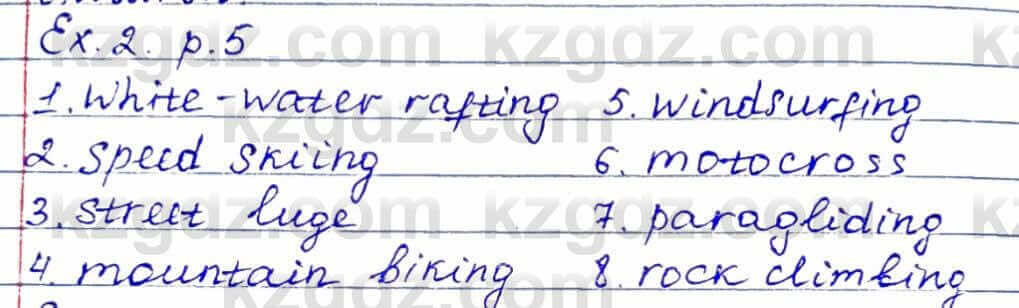 Ex. 2. p. 5
1. White-water rafting 5. windsurfing
2. Speed Skiing 6. motocross
3. street luge 7. paragliding
4. mountain biking 8. rock climbing
kzgdz.com
kzgdz.com
kzgdz.com
kzgdz.com